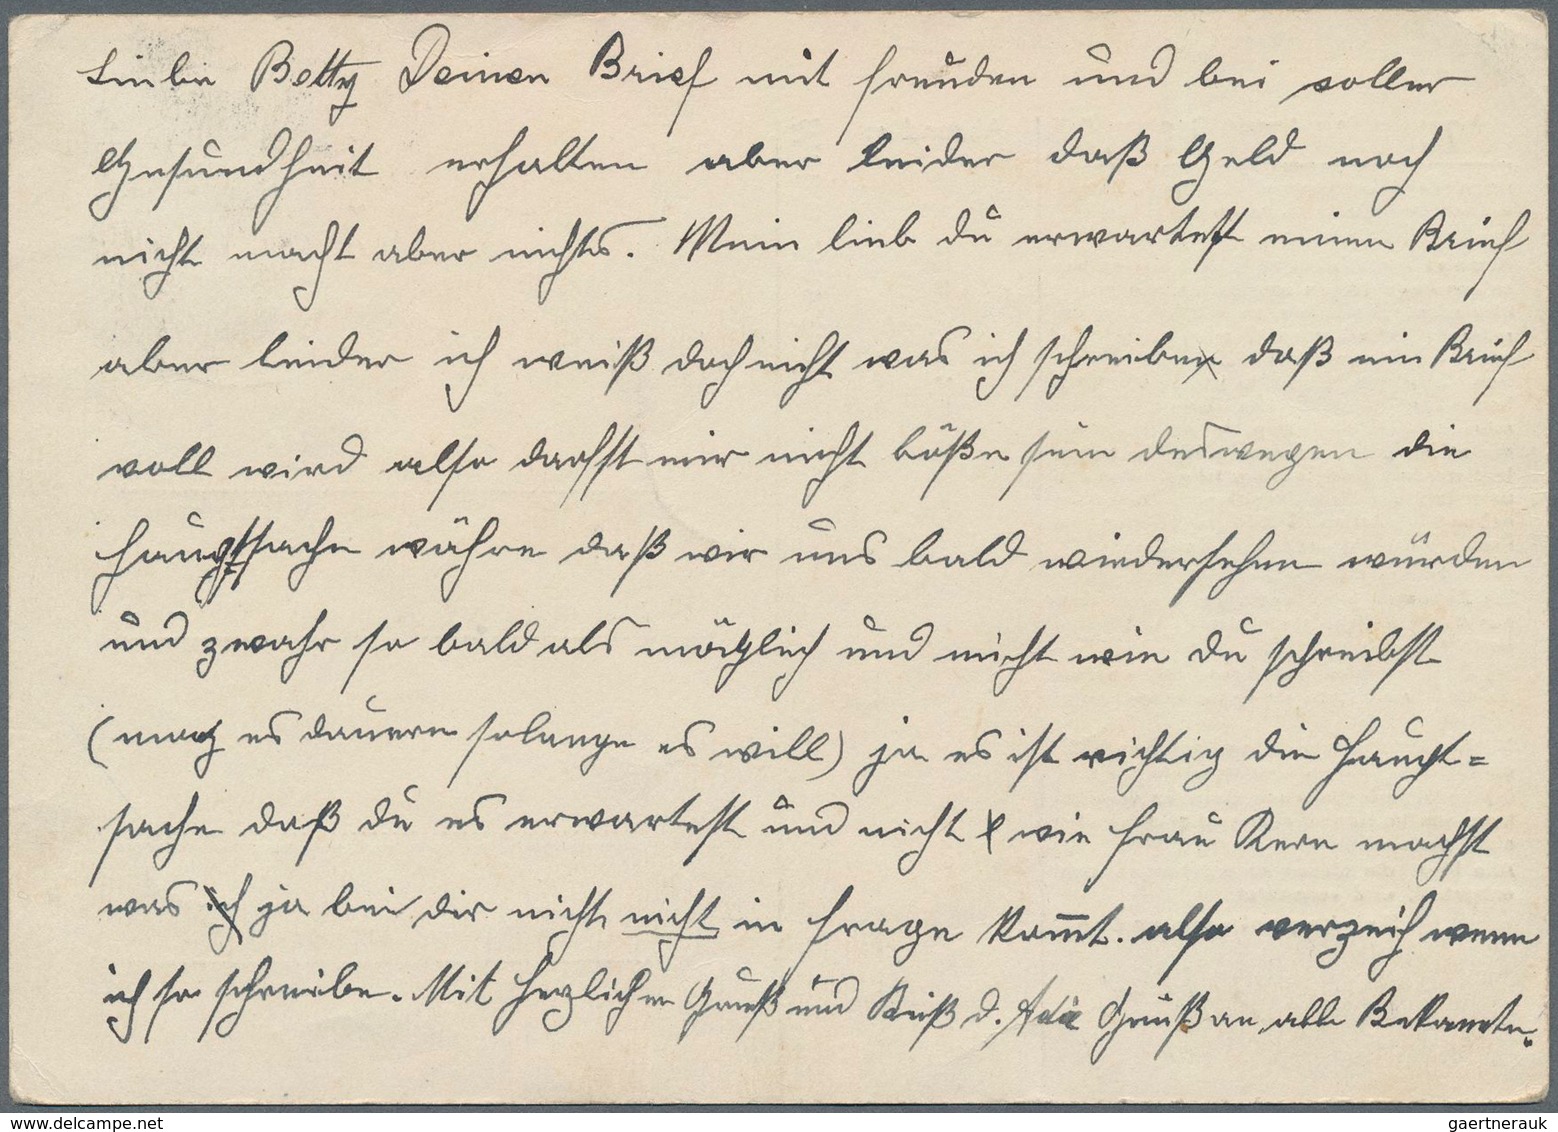 Liebe Betty Deinen Brief mit freuden und bei voller
Gesundheit erhalten aber leider daß Geld noch
nicht macht aber nichts. Mein lieb du erwartest einen Brief
aber leider ich weiß doch nicht was ich schreiben daß ein Brief
voll wird also darfst mir nicht böße sein deswegen die
Hauptsache währe daß wir uns bald wiedersehen würden
und zwahr so bald als möglich und nicht wie du schreibst
(mag es dauern solange es will) ja es ist richtig die Haupt=
sache daß du es erwartest und nicht wie Frau Kern machst
was ja bei dir nicht nicht in frage kommt. also verzeih wenn
ich so schreibe. Mit herzlichen Gruß und Kuß d. Gruß an alle Bekannte.
www.delcampe.net
gaertnerauk